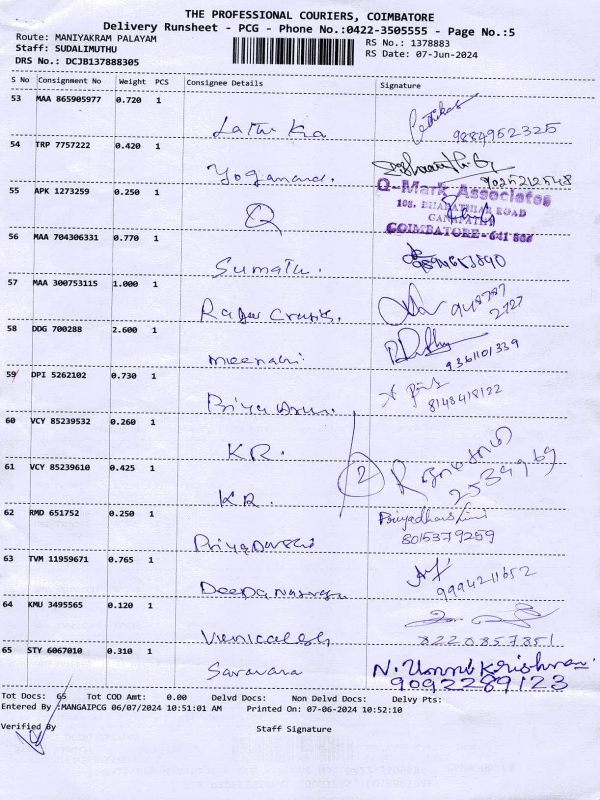 THE PROFESSIONAL COURIERS, COIMBATORE
Delivery Runsheet - PCG - Phone No.:0422-3505555 - Page No.:5
Route: MANIYAKRAM PALAYAM
RS No.: 1378883
Staff: SUDALIMUTHU
RS Date: 07-Jun-2024
DRS No.: DCJB137888305
S No Consignment No Weight PCS Consignee Details Signature
53 MAA 865905977 0.720 1
Lathika 9884952325
54 TRP 7757222 0.420 1
Yoganand.
55 APK 1273259 0.250 1
Q-Mark Associates
108, BHARATHIAR ROAD
GANAPATHY
COIMBATORE - 641 006
Q
56 MAA 704306331 0.770 1
Sumathi.
57 MAA 300753115 1.000 1
948787
2727
58 DDG 700288 2.600 1
Meenachi. 9361101339
59 DPI 5262102 0.730 1
8148418122
60 VCY 85239532 0.260 1
KR.
61 VCY 85239610 0.425 1
2
KR.
62 RMD 651752 0.250 1
Priyadharshini
8015379259
63 TVM 11959671 0.765 1
9994211652
64 KMU 3495565 0.120 1
8220857851
65 STY 6067010 0.310 1
Saravana
N. Unnikrishnan
9092289123
Tot Docs: 65 Tot COD Amt: 0.00 Delvd Docs: Non Delvd Docs: Delvy Pts:
Entered By :MANGAIPCG 06/07/2024 10:51:01 AM Printed On: 07-06-2024 10:52:10
Verified By Staff Signature